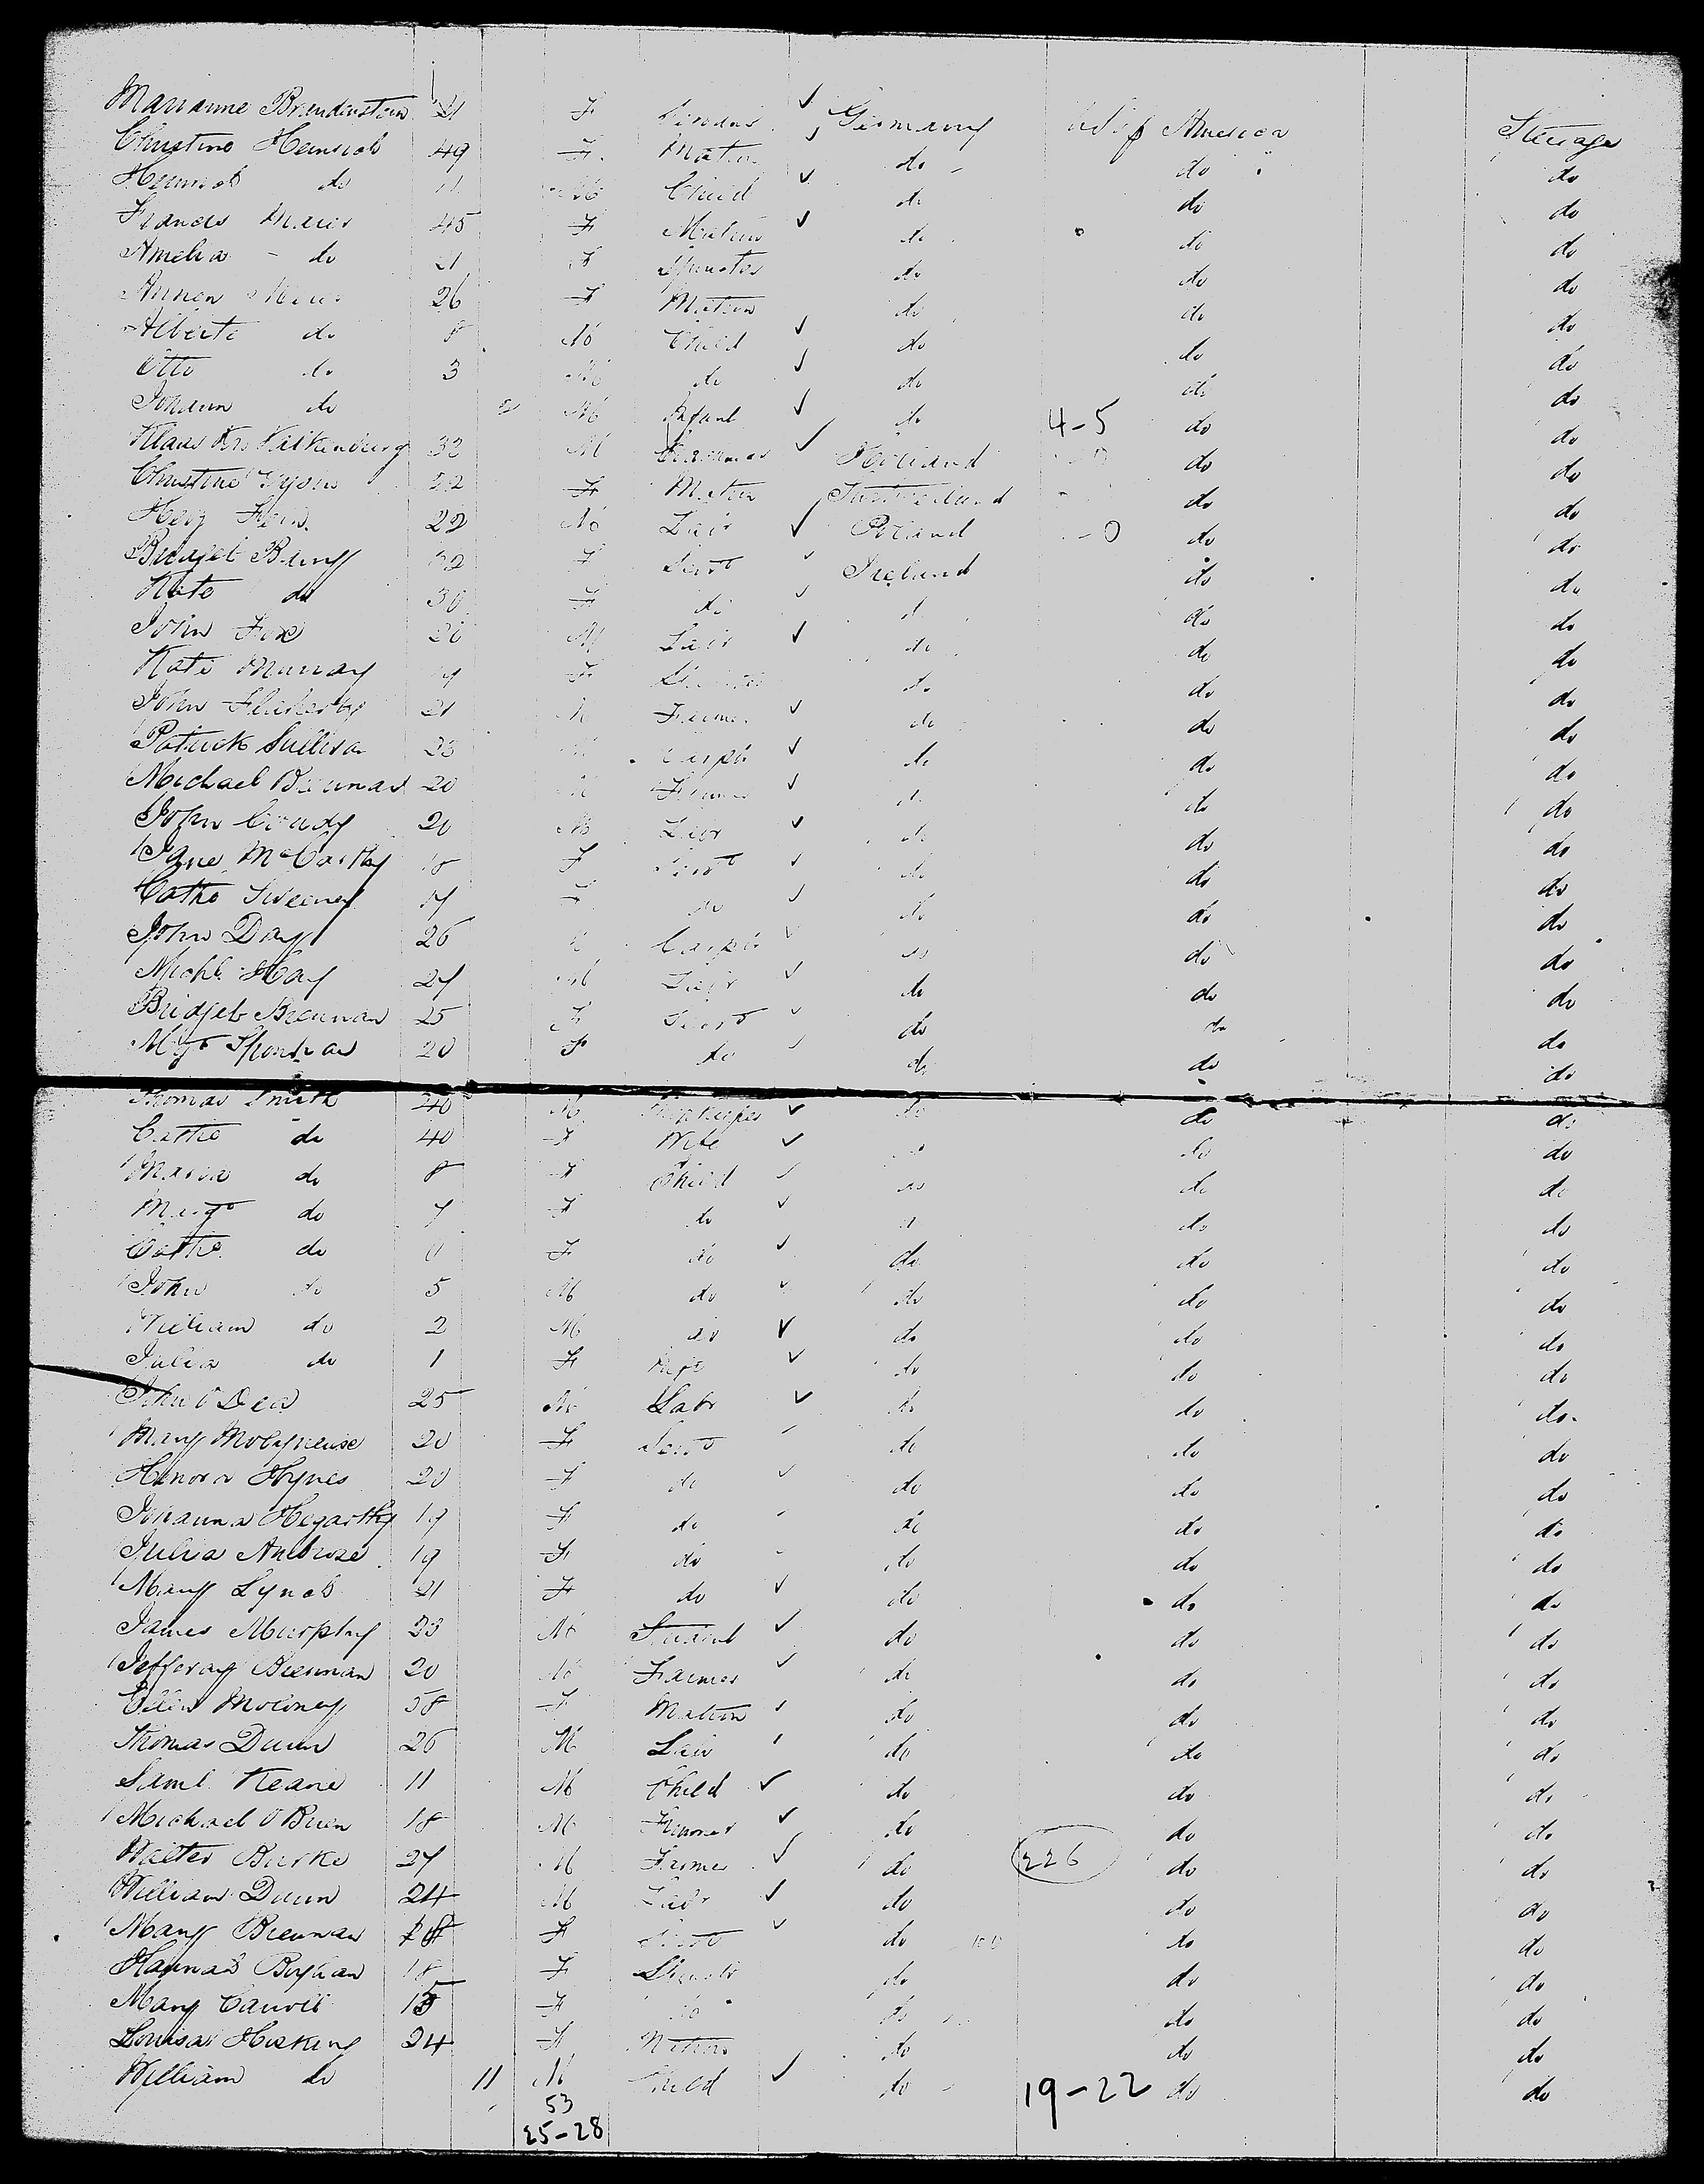 Marianne Brandenstein 21 F Germany U S of America Steerage
Christine Heinrich 49 F Matron do do do
Heinrich do 11 M Child do do do
Frances Maier 45 F Matron do do do
Amelia do 21 F Spinster do do do
26 F Matron do do do
Alberte do 8 M Child do do do
Otto do 3 M do do do do
Johann do M Infant do 4-5 do do
Klaas Valkenburg 32 M Holland do do
Christine F Matron Switzerland do do
22 M Labr Poland -0 do do
Bridget F Servt Ireland do do
Kate do 30 F do do do do
John Fox 20 M Labr do do do
Kate Murray 19 F Spinster do do do
John Flaherty 21 M Farmer do do do
Patrick Sullivan 23 M Carptr do do do
Michael Brennan 20 M Farmer do do do
John Coudy 20 M Labr do do do
Jane McCarthy 18 F Servt do do do
Cathe Sweeney 17 F do do do do
John Day 26 M Carptr do do do
Michl Hay 27 M Labr do do do
Bridget Brennan 25 F Servt do do do
Mgt 20 F do do do do
Thomas Smith 40 M Shopkeeper do do do
Cathe do 40 F Wife do do do
Maria do 8 F Child do do do
Margt do 7 F do do do do
Cathe do 6 F do do do do
John do 5 M do do do do
William do 2 M do do do do
Julia do 1 F Inft do do do
John O Dea 25 M Labr do do do
Mary Molyneuse 20 F Servt do do do
Honora Hynes 20 F do do do do
Johanna Hegarthy 19 F do do do do
Julia Ambrose 19 F do do do do
Mary Lynch 21 F do do do do
James Murphy 23 M Servant do do do
Jefferay Brennan 20 M Farmer do do do
Ellen Moloney 58 F Matron do do do
Thomas Dunn 26 M Labr do do do
Saml Keane 11 M Child do do do
Michael O Brien 18 M Farmer do do do
Walter Burke 27 M Farmer do 226 do do
William Dunn 24 M Labr do do do
Mary Brennan 18 F Servt do do do
Hannah Boylan 18 F Spinster do do do
Mary Carroll 15 F do do do do
Louisa Hosking 24 F Matron do do do
William do 11 M Child do 19-22 do do
53
25-28